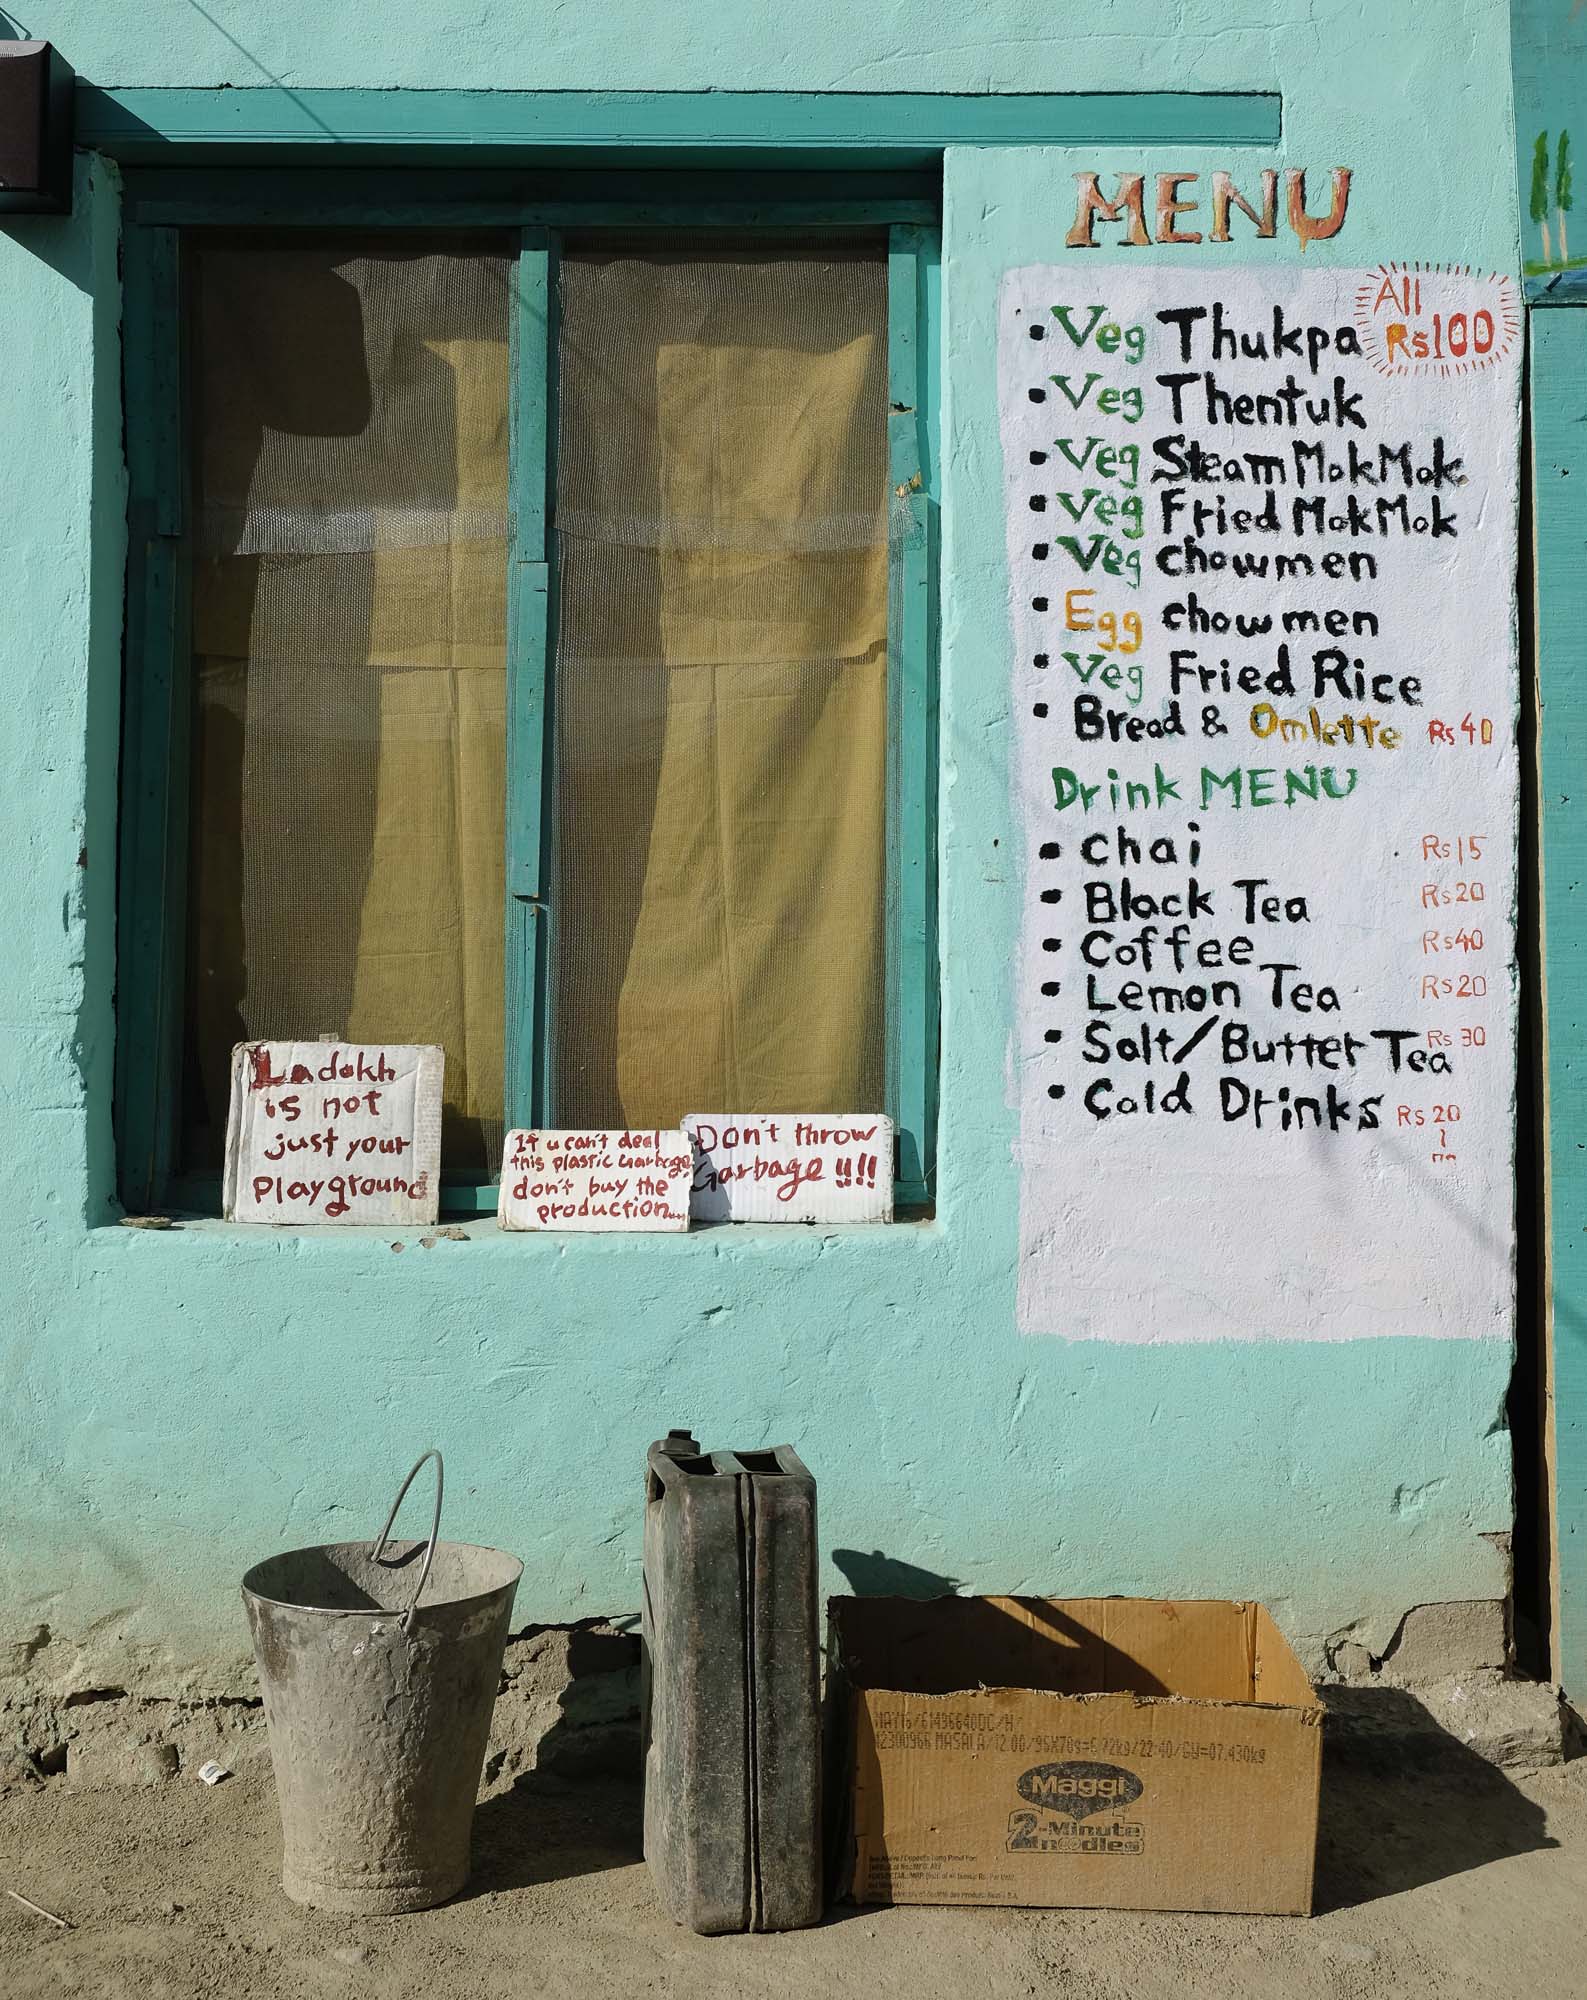 MENU
All
Rs100
• Veg Thukpa
• Veg Thentuk
• Veg Steam MokMok
• Veg Fried MokMok
• Veg chowmen
• Egg chowmen
• Veg Fried Rice
• Bread & Omlette Rs 40
Drink MENU
• Chai Rs15
• Black Tea Rs20
• Coffee Rs40
• Lemon Tea Rs20
• Salt/Butter Tea Rs 30
• Cold Drinks Rs 20
Ladakh
is not
just your
playground
If u can't deal
this plastic Garbage
don't buy the
production....
Don't throw
Garbage !!!!
MAY16/61496640DC/H/
12300966 MASALA/12.00/96X70g=6.72kg/22.40/GW=07.430kg
Maggi
2-Minute
noodles